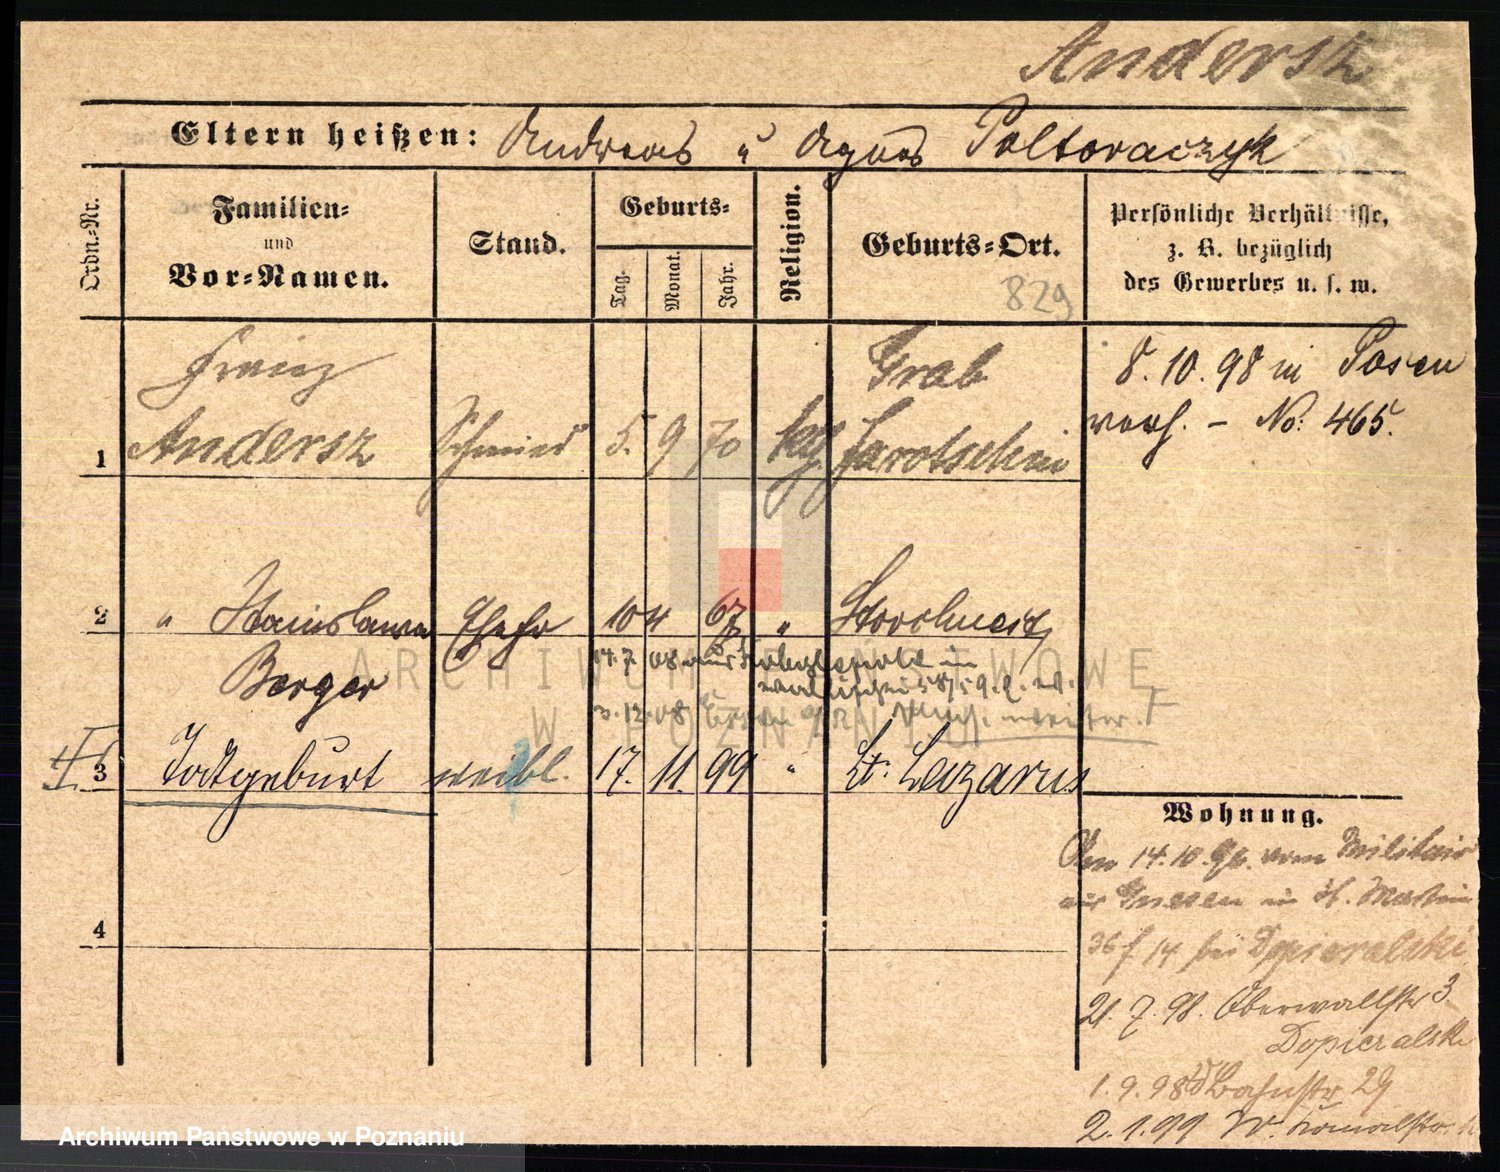 Andersz
Eltern heißen: Andreas u Agnes Poltoraczyk
Ordn.-Nr.
Familien-
und
Vor-Namen.
Stand.
Geburts-
Tag.
Monat.
Jahr.
Religion.
Geburts-Ort.
829
Persönliche Verhältnisse,
z. B. bezüglich
des Gewerbes u. s. w.
Franz
Grab
1 Andersz Schmied 5. 9 70 kath Jarotschin
8. 10. 98 in Posen
verh. - No: 465.
2 " Stanislawa Ehefr 10 4 67 "
Berger
14.7. 08
3.12.08
3 Todtgeburt weibl. 17. 11. 99 " St. Lazarus
4
Wohnung.
Am 14.10.96. vom Militair
aus Gnesen in St. Martin
36 f 14 bei Dopieralski
21. 7. 98. Oberwallstr 3
Dopieralski
1. 9. 98 Bahnstr 29
2. 1. 99 W.
ARCHIWUM PAŃSTWOWE
W POZNANIU
Archiwum Państwowe w Poznaniu